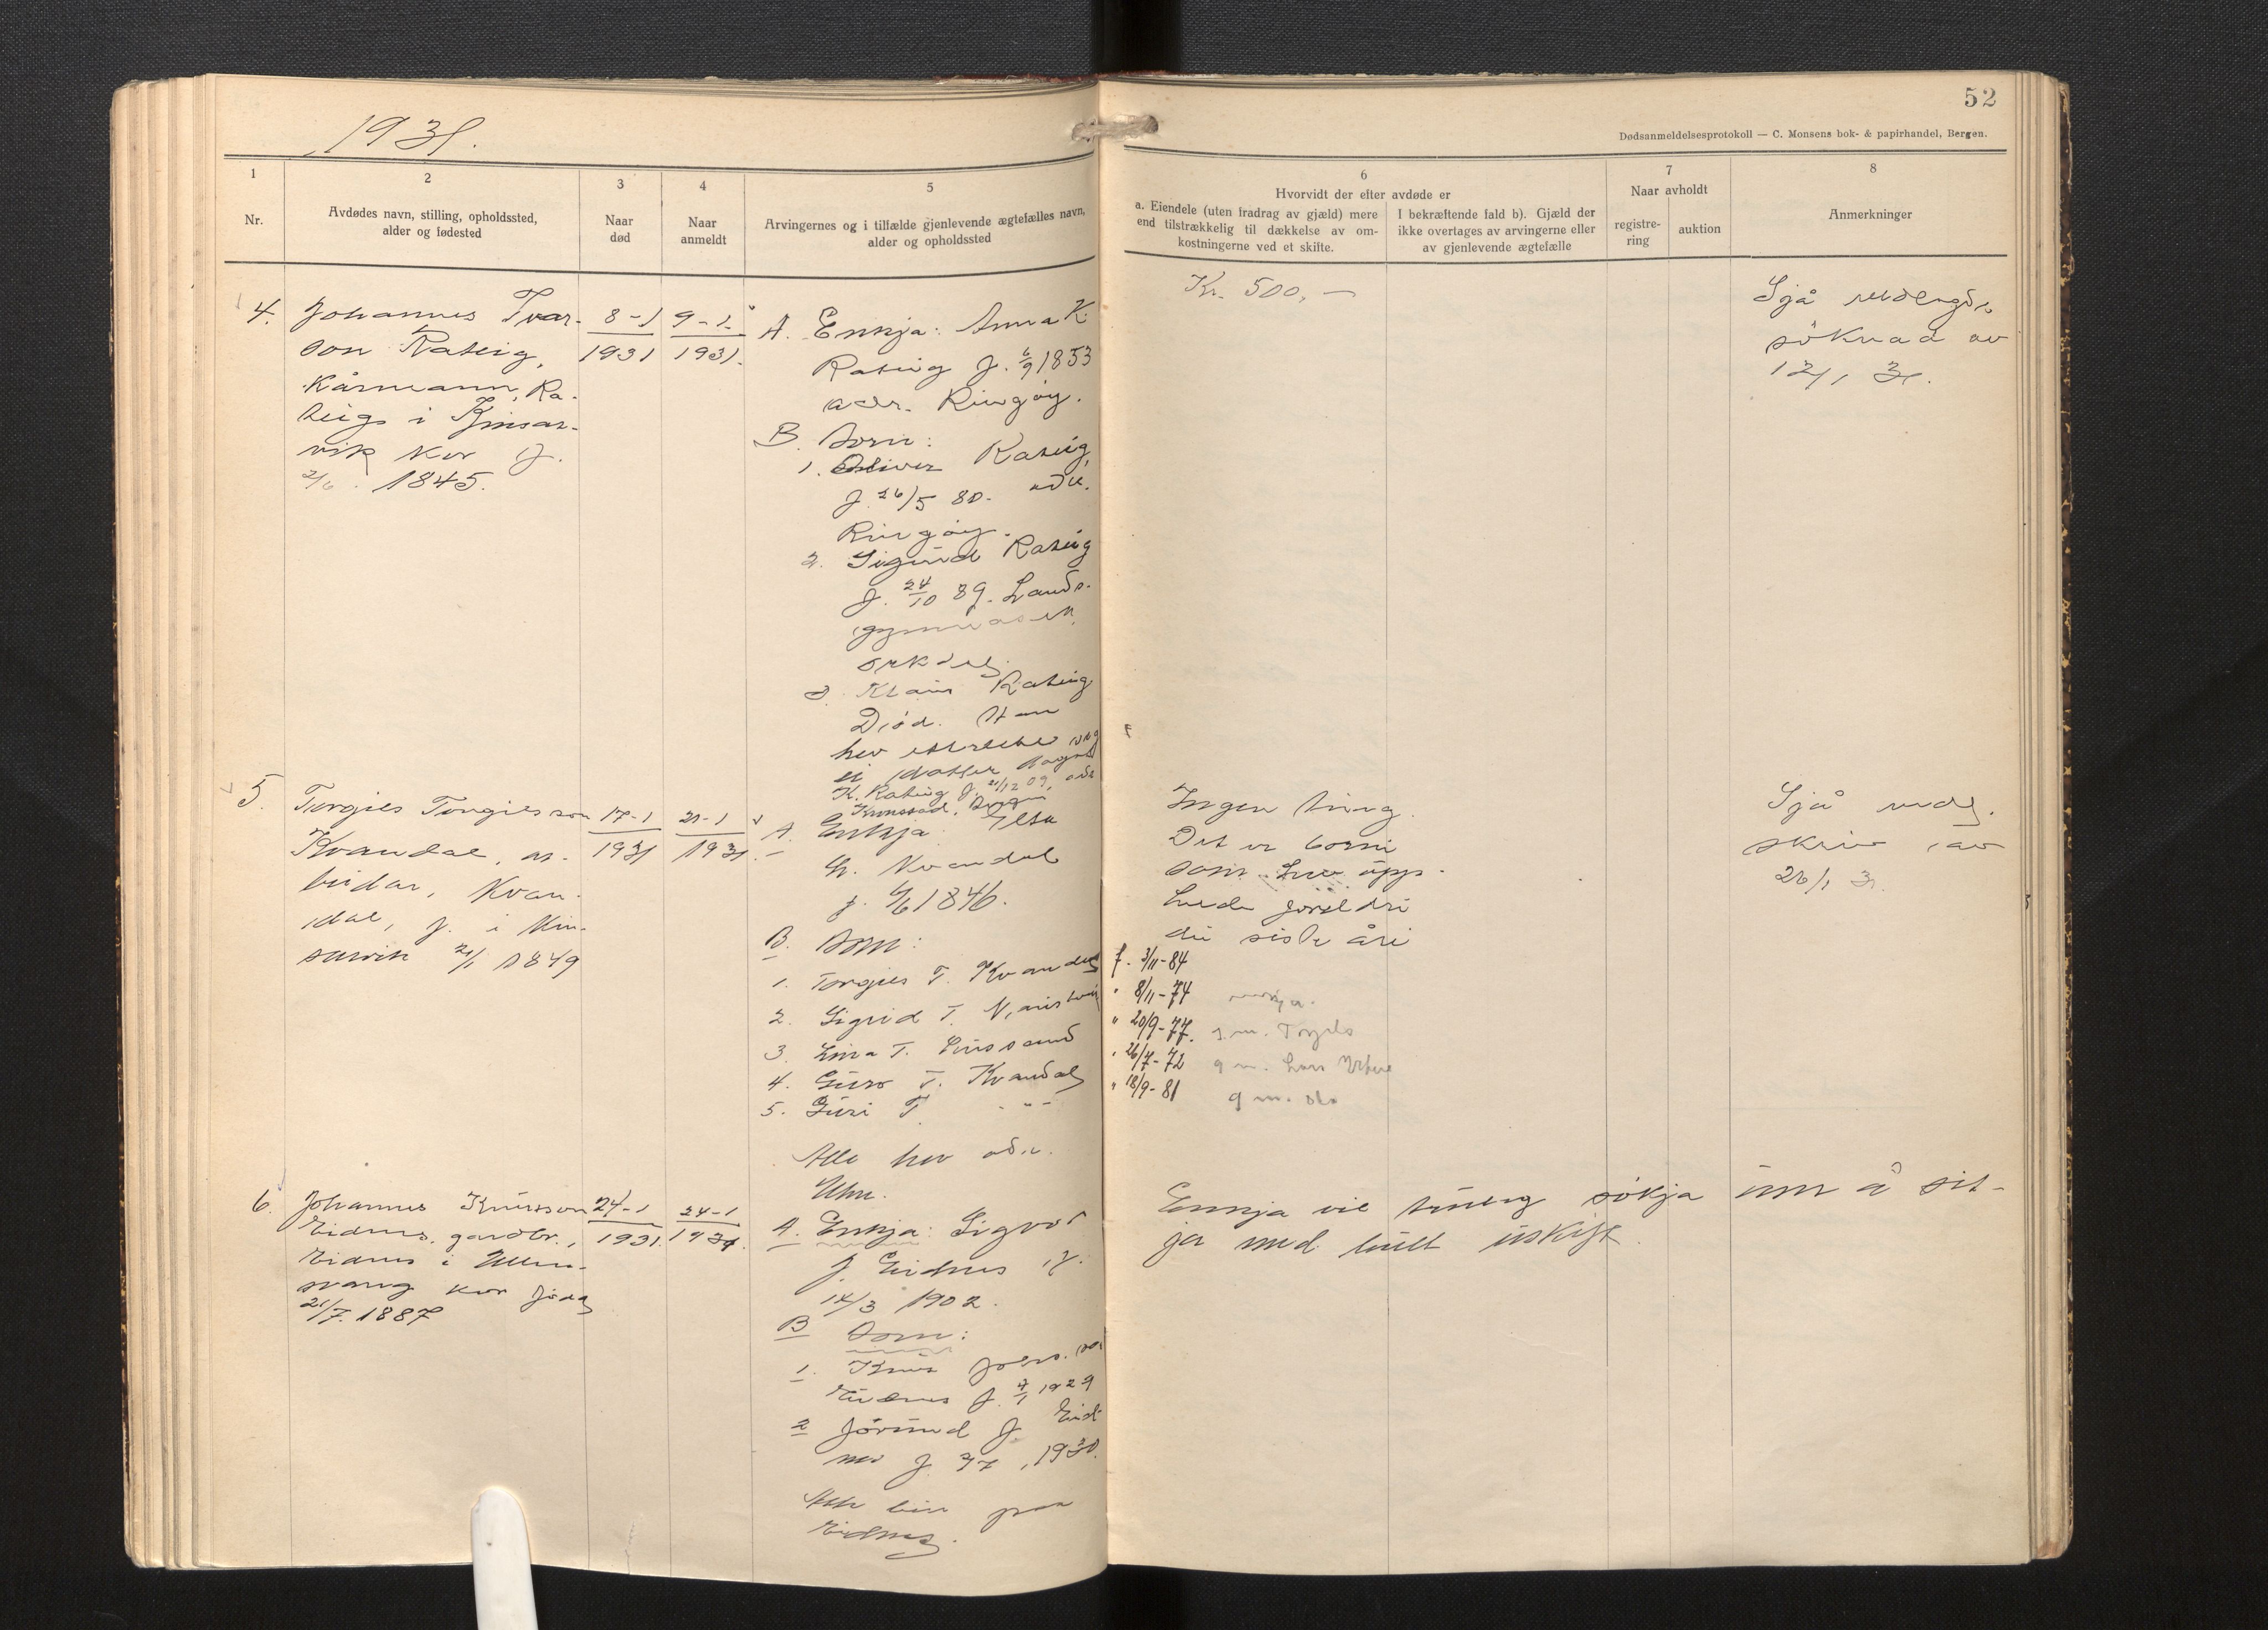 1931.
52
Dødsanmeldelsesprotokoll — C. Monsens bok- & papirhandel, Bergen.
1
Nr.
2
Avdødes navn, stilling, opholdssted,
alder og fødested
3
Naar
død
4
Naar
anmeldt
5
Arvingernes og i tilfælde gjenlevende ægtefælles navn,
alder og opholdssted
6
Hvorvidt der efter avdøde er
a. Eiendele (uten fradrag av gjæld) mere
end tilstrækkelig til dækkelse av om-
kostningerne ved et skifte.
I bekræftende fald b). Gjæld der
ikke overtages av arvingerne eller
av gjenlevende ægtefælle
7
Naar avholdt
registre-
ring
auktion
8
Anmerkninger
4.
Johannes Ivar-
son Rateig,
Kårmann, Ra-
teig i Kinsar-
vik kor f.
2/6 1845.
8-1
1931
9-1
1931.
A. Enkja: Anna K.
Rateig f. 6/9 1853
adr. Ringøy.
B. Born:
1. Oliver Rateig,
f. 26/5 80. adr.
Ringøy.
2. Sigurd Rateig
f. 24/10 89. Lands-
gymnaset,
Orkdal
3. Rateig
Død. Han
hev etterlate seg
ei dotter
K. Rateig f. 21/12 09, adr.
Kronstad, Bergen
Kr. 500,—
Sjå
søknad av
12/1 31.
5.
Torgils Torgilsson
Kvandal, ar-
beidar, Kvan-
dal, f. i Kin-
sarvik 21/1 1849
17-1
1931
21-1
1931.
A. Enkja
Kvandal
f. 6/6 1846.
B. Born:
1. Torgils T. Kvandal
2. Sigrid T.
3. T.
4. Guro T. Kvandal
5. Guri T. - " -
Alle hev adr.
Utne.
Ingen ting.
Det er borni
som hev upp-
helde foreldri
dei siste åri
f. 3/11-84
" 8/11-74 enkja.
" 20/9-77. g.m.
" 26/7-72 g m. Lars
" 18/9-81 g m.
Sjå
skriv av
26/1 31.
6.
Johannes Knutsson
Eidnes, gardbr.,
Eidnes i Ullens-
vang kor fødd
21/7. 1887
24-1
1931.
24-1
1931.
A. Enkja: Sigvor
J. Eidnes f.
14/3 1902.
B Born:
1. Knut Johs. son
Eidnes f. 4/1 1929
2 Jørund J. Eid-
nes f. 1930.
Alle bur paa
Eidnes.
Enkja vil truleg søkja um å sit-
ja med buet uskift.